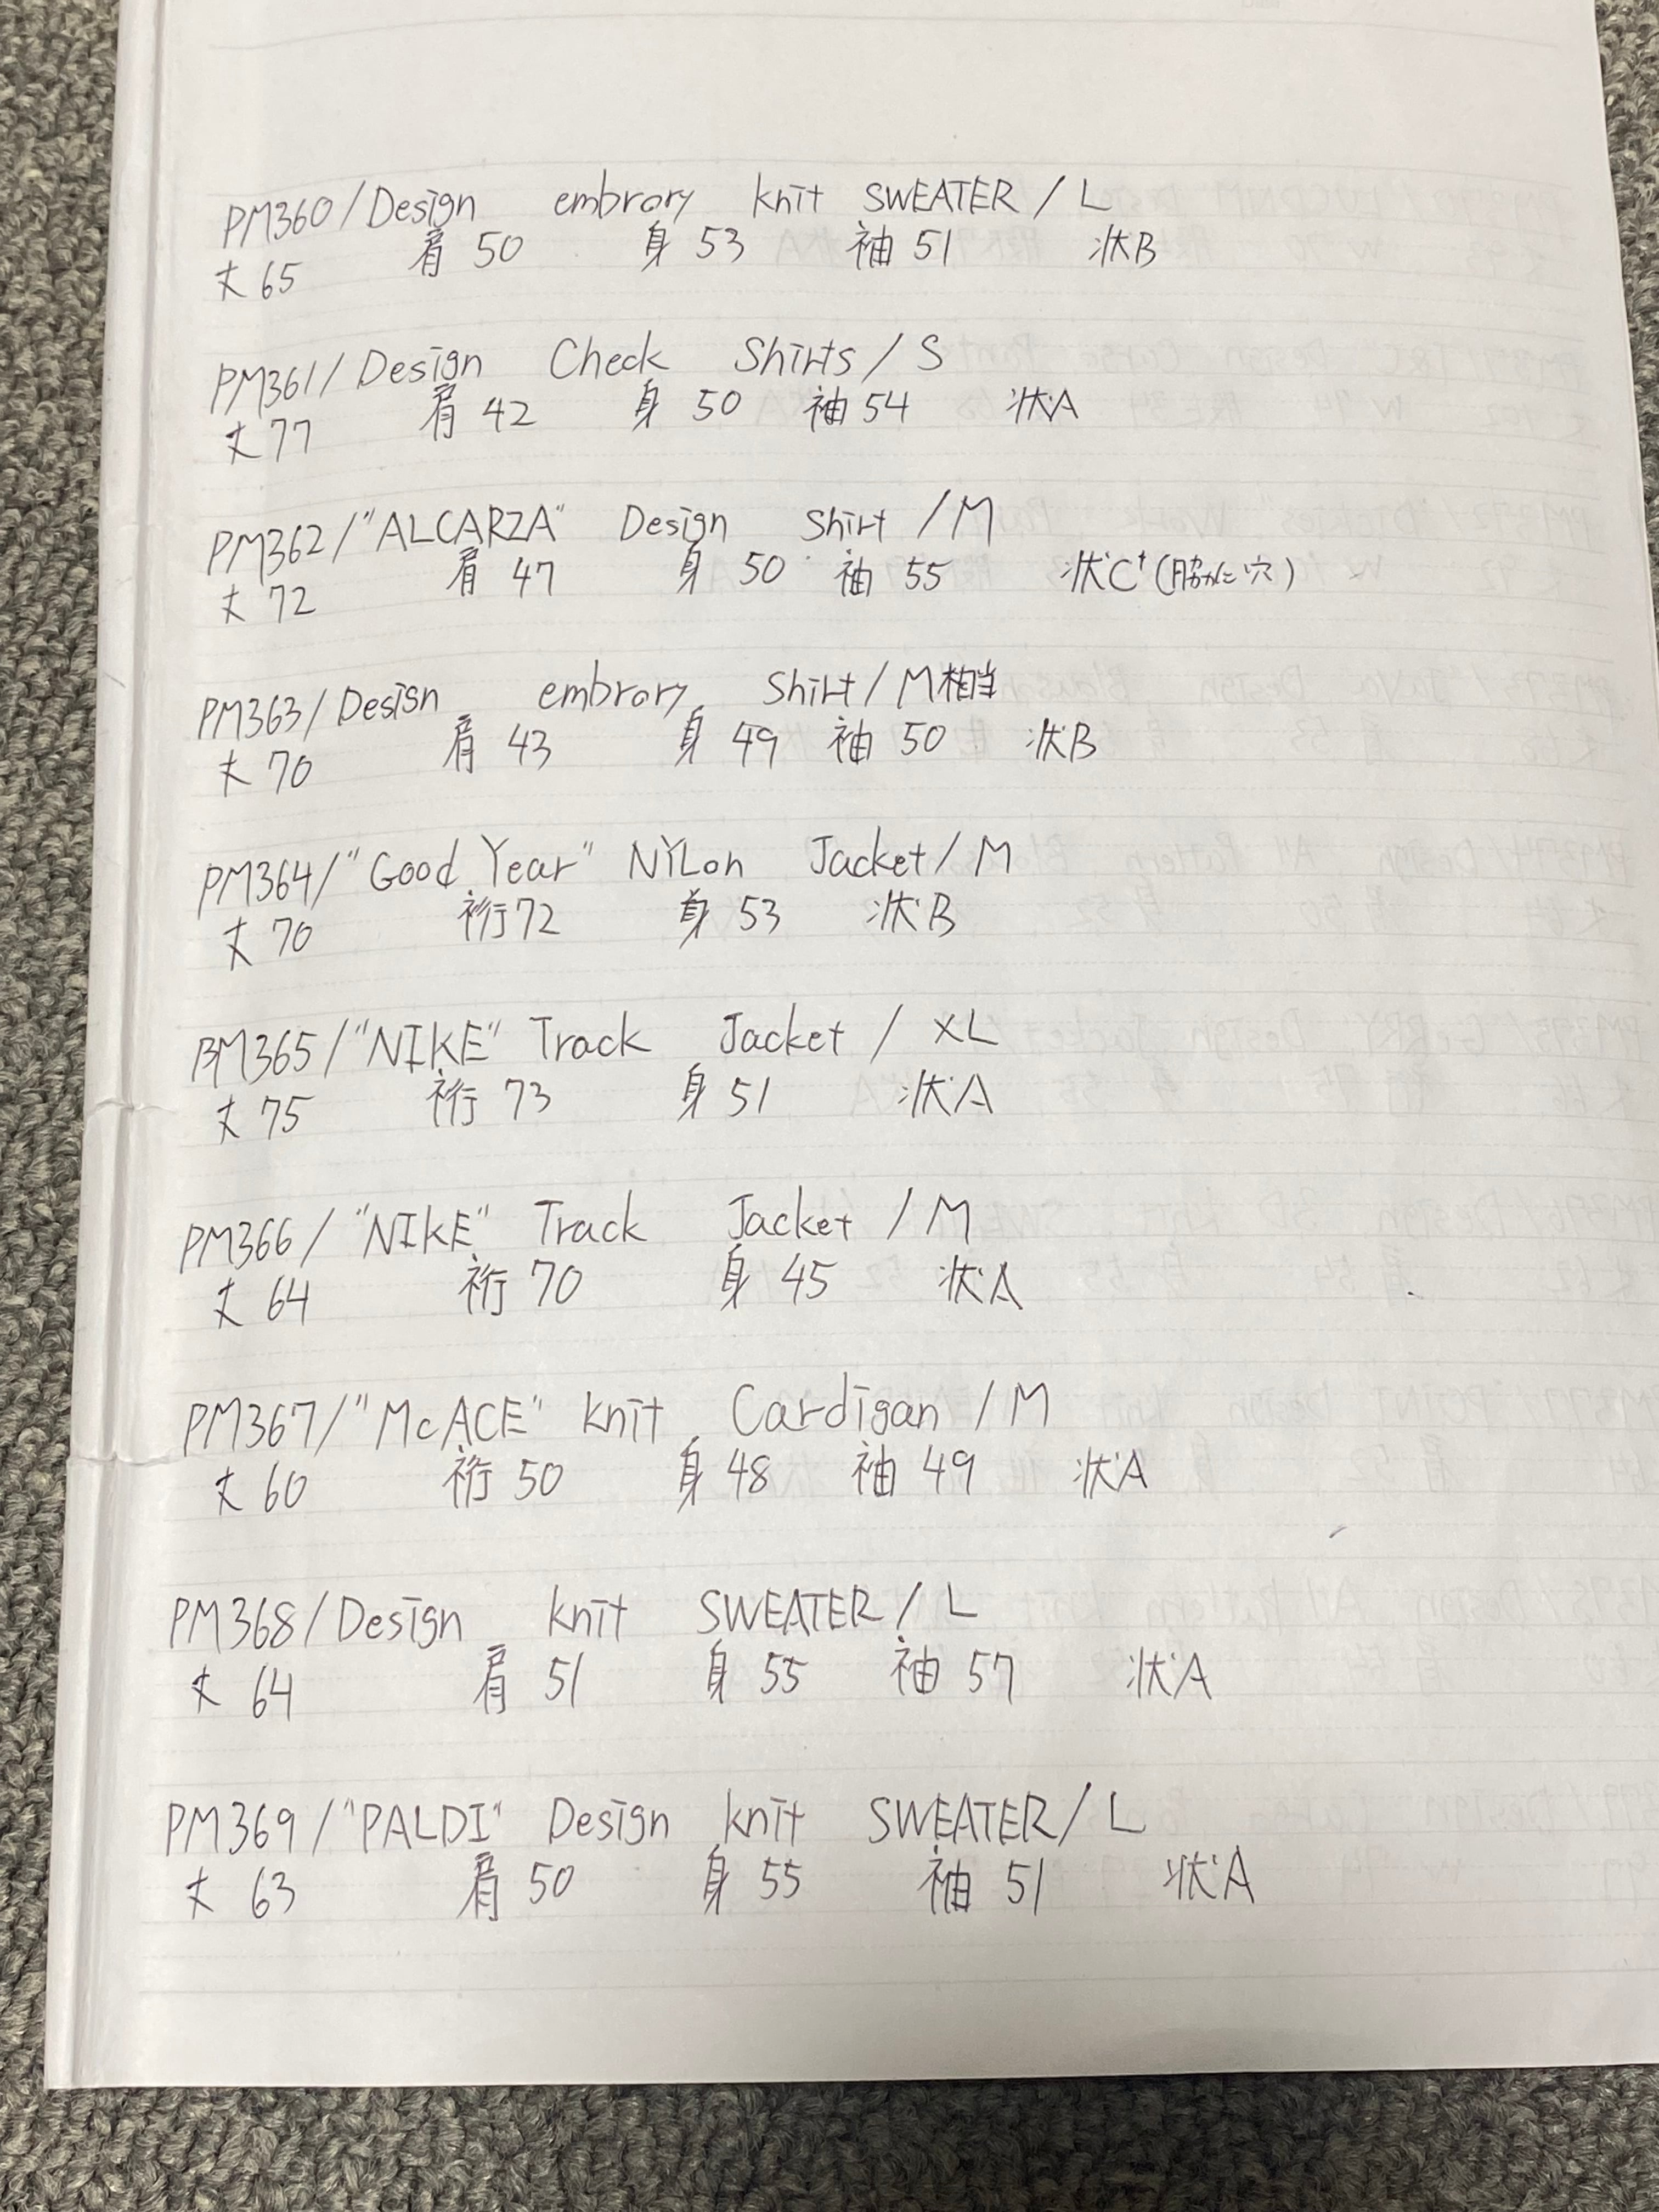 PM360/Design embrory knit SWEATER/L
丈65 肩50 身53 袖51 状B
PM361/Design Check Shirts/S
丈77 肩42 身50 袖54 状A
PM362/"ALCARZA" Design Shirt/M
丈72 肩47 身50 袖55 状C+(脇に穴)
PM363/Design embrory Shirt/M相当
丈70 肩43 身49 袖50 状B
PM364/"Good Year" NYLon Jacket/M
丈70 裄72 身53 状B
BM365/"NIKE" Track Jacket/XL
丈75 裄73 身51 状A
PM366/"NIKE" Track Jacket/M
丈64 裄70 身45 状A
PM367/"McACE" knit Cardigan/M
丈60 裄50 身48 袖49 状A
PM368/Design knit SWEATER/L
丈64 肩51 身55 袖57 状A
PM369/"PALDI" Design knit SWEATER/L
丈63 肩50 身55 袖51 状A